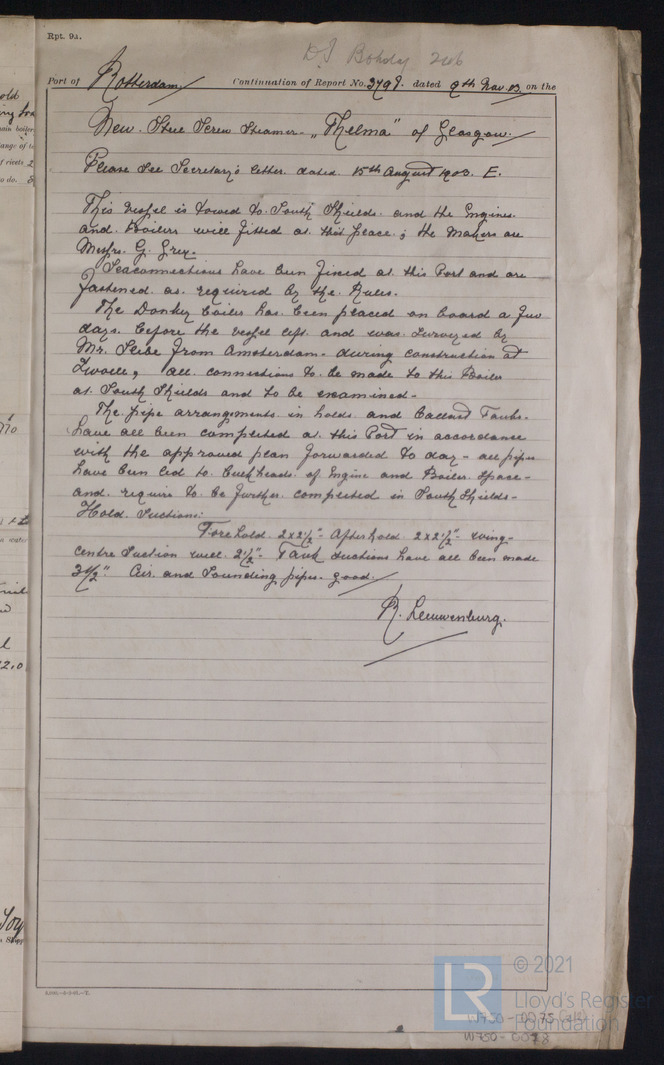 Rpt. 9a.
Port of Rotterdam Continuation of Report No. 3798. dated 9th Nov. 03 on the
New. Steel Screw Steamer - „Thelma" of Glasgow.
Please See Secretary's letter. dated. 15th August 1903. E.
This vessel is towed to South Shields. and the Engines.
and Boilers will fitted at this place; the Makers are
Messrs. G. Grey.
Seaconnections have been fixed at this Port and are
fastened as required by the Rules.
The Donkey boiler has been placed on board a few
days. before the vessel left. and was Surveyed by
Mr. from Amsterdam - during construction at
Zwolle, all connections to be made to this Boiler
at South Shields and to be examined -
The pipe arrangements in holds and Ballast Tanks.
have all been completed at this Port in accordance
with the approved plan forwarded to day - all pipes
have been led to bulkheads of Engine and Boiler Space -
and require to be further completed in South Shields -
Hold Suctions:
Forehold 2x2½"- Afterhold 2x2½"- wing -
centre Suction well 2½"- Tank Suctions have all been made
3½". Air and Sounding pipes good.
R. Leeuwenburg.
© 2021
LR
Lloyd's Register
Foundation
W750-0075
W750-0078